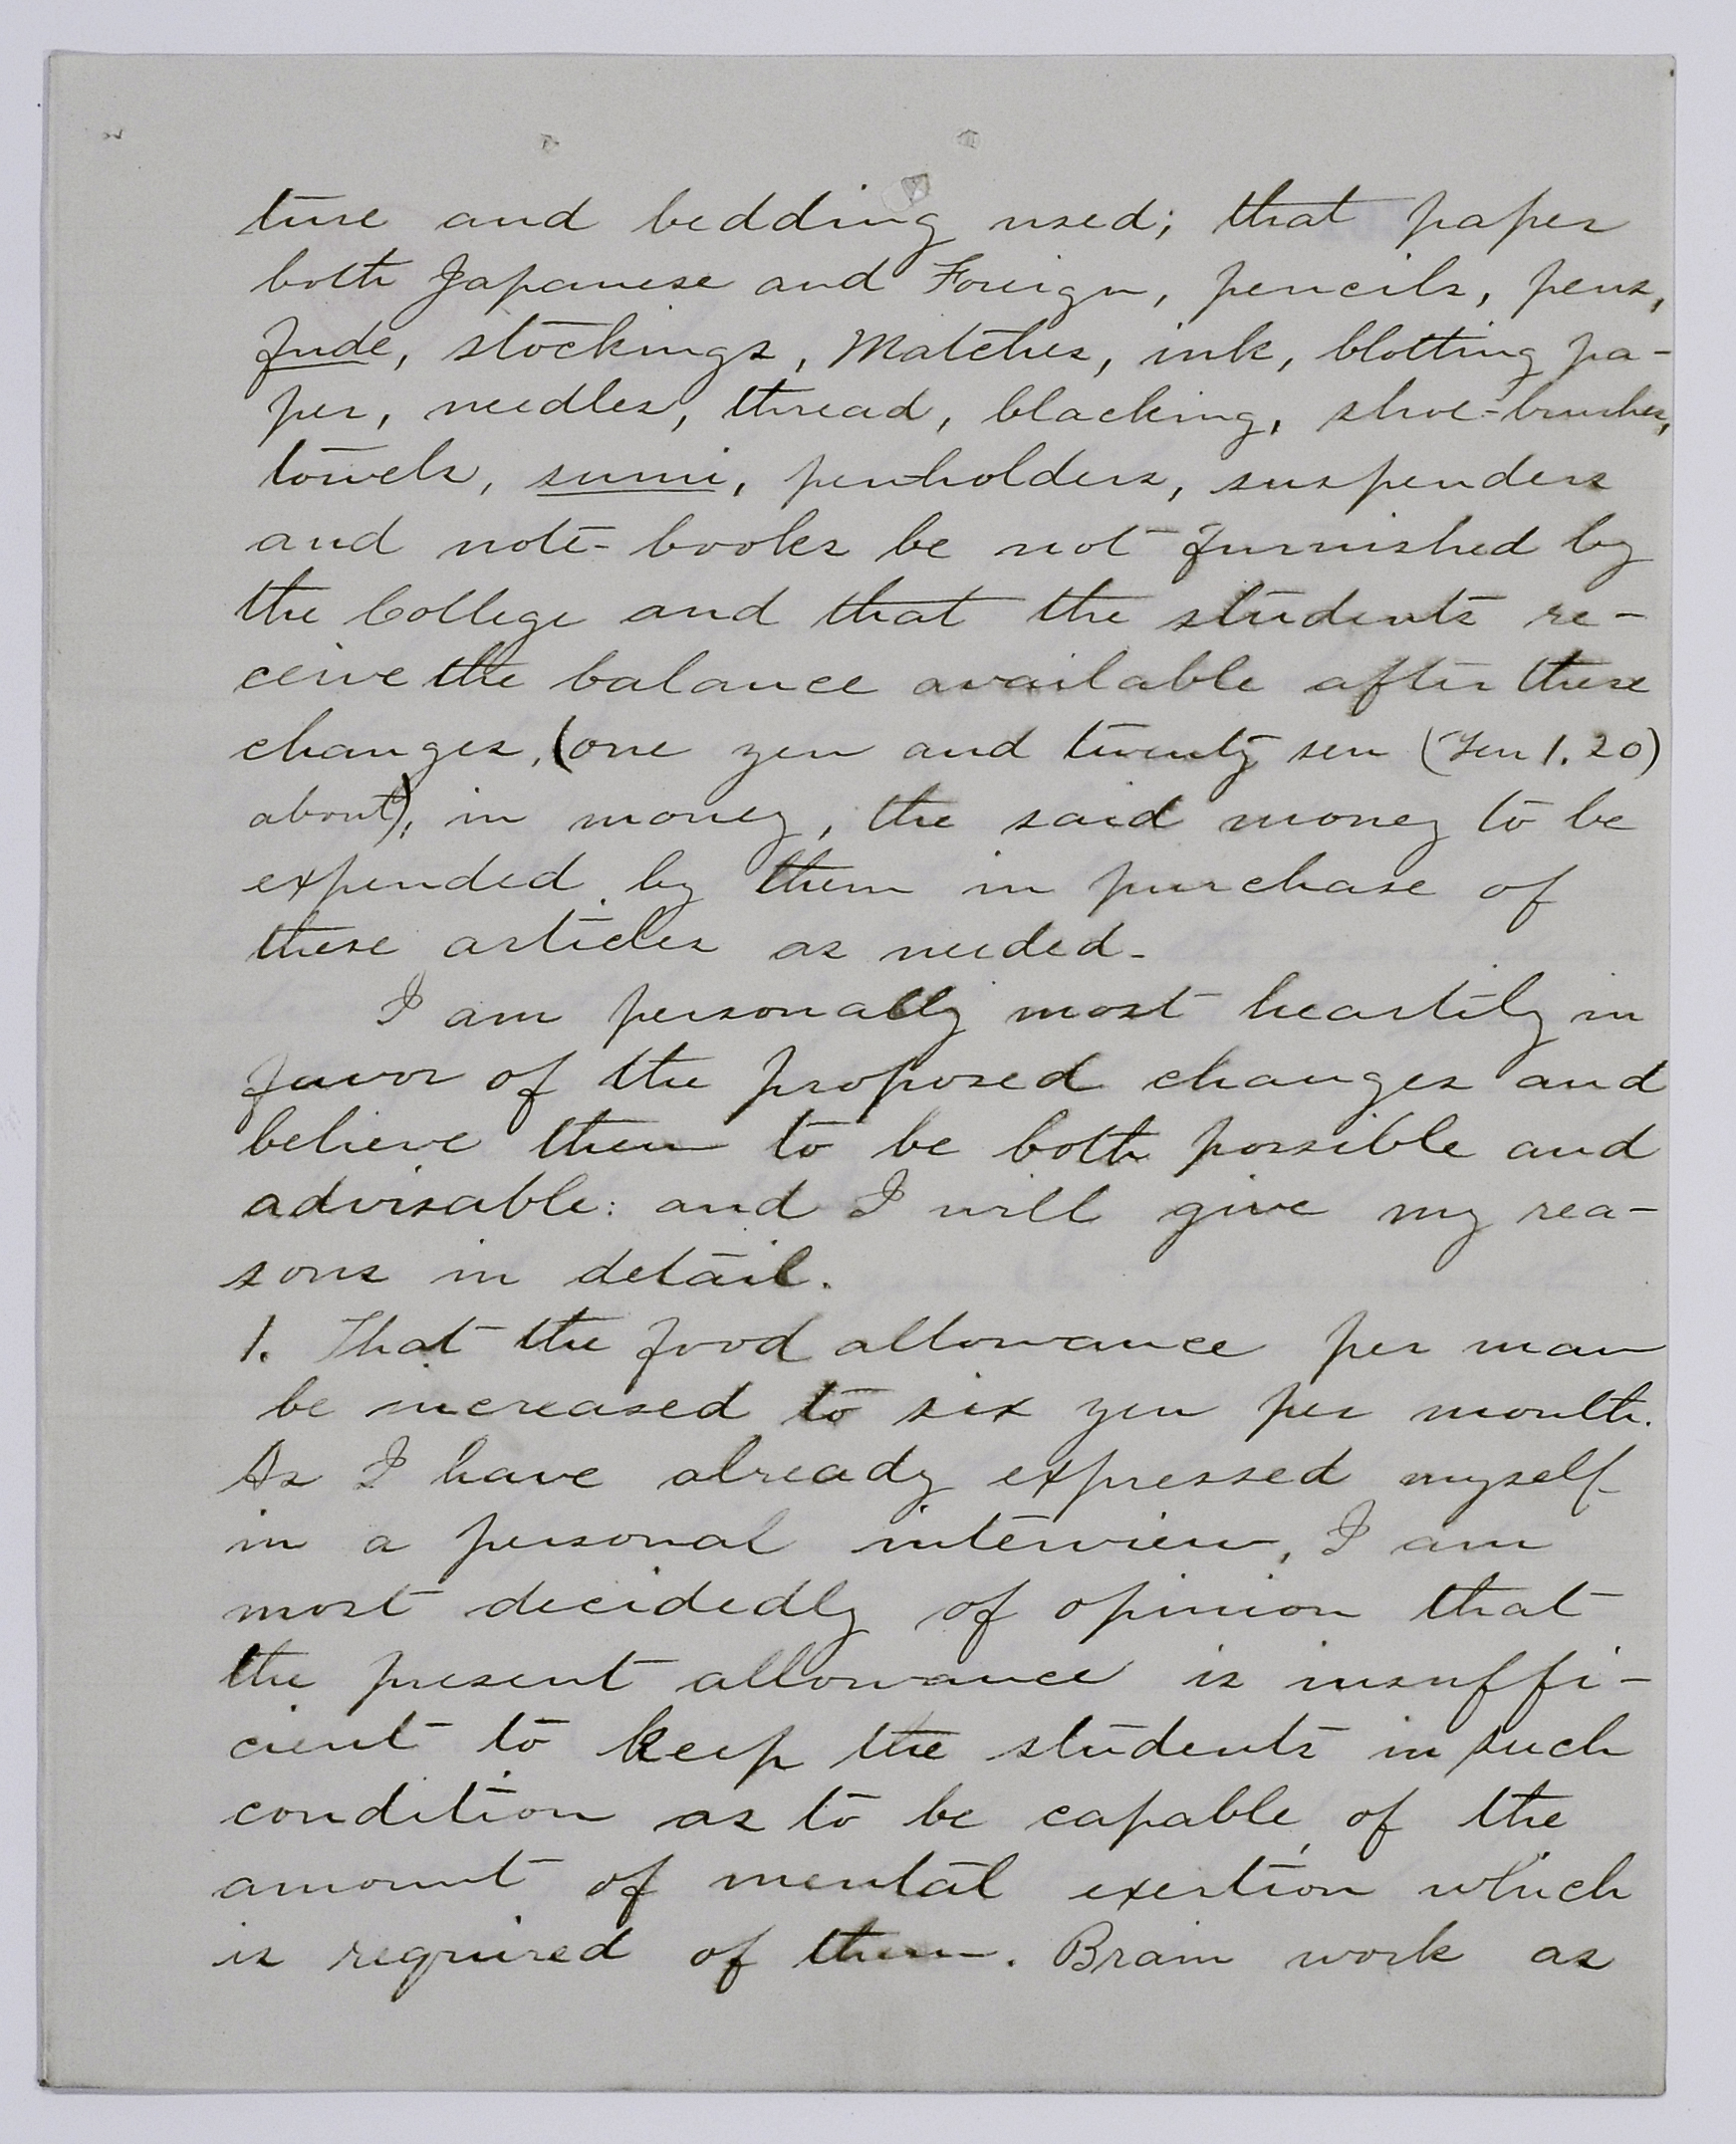 ture and bedding used; that paper
both Japanese and Foreign, pencils, pens,
fude, stockings, Matches, ink, blotting pa-
per, needles, thread, blacking, shoe-brushes,
towels, sumi, penholders, suspenders
and note-books be not furnished by
the College and that the students re-
ceive the balance available after these
changes, (one yen and twenty sen (Yen 1.20)
about), in money, the said money to be
expended by them in purchase of
these articles as needed.
I am personally most heartily in
favor of the proposed changes and
believe them to be both possible and
advisable: and I will give my rea-
sons in detail.
1. That the food allowance per man
be increased to six yen per month.
As I have already expressed myself
in a personal interview, I am
most decidedly of opinion that
the present allowance is insuffi-
cient to keep the students in such
condition as to be capable of the
amount of mental exertion which
is required of them. Brain work as